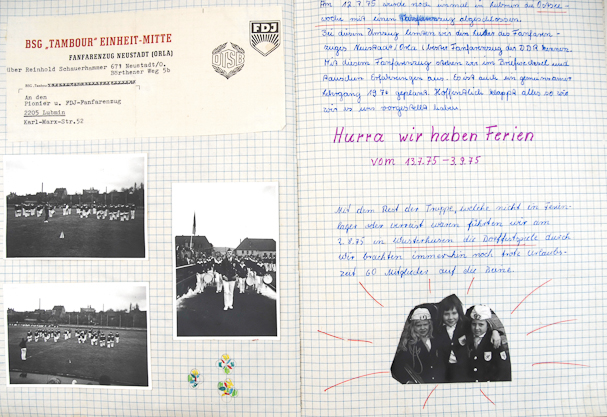 BSG „TAMBOUR" EINHEIT-MITTE
FANFARENZUG NEUSTADT (ORLA)
über Reinhold Schauerhammer 671 Neustadt/O.
Börthener Weg 5b
DTSB
FDJ
An den
Pionier u. FDJ-Fanfarenzug
2205 Lubmin
Karl-Marx-Str.52
Am 12.7.75 wurde noch einmal in Lubmin die Ostsee-
woche mit einem abgeschlossen.
Bei diesem Umzug lernten wir den Leiter des Fanfaren-
zuges Neustadt/Orla (bester Fanfarenzug der DDR) kennen.
Mit diesem Fanfarenzug stehen wir im Briefwechsel und
tauschen Erfahrungen aus. Es ist auch ein gemeinsamer
Lehrgang 1976 geplant. Hoffentlich klappt alles so wie
wir es uns vorgestellt haben.
Hurra wir haben Ferien
vom 13.7.75 – 3.9.75
Mit dem Rest der Truppe, welche nicht in Ferien-
lager oder verreist waren führten wir am
2.8.75 in Wusterhusen die Dorffestspiele durch
wir brachten immerhin noch trotz Urlaubs-
zeit 60 Mitglieder auf die Beine.